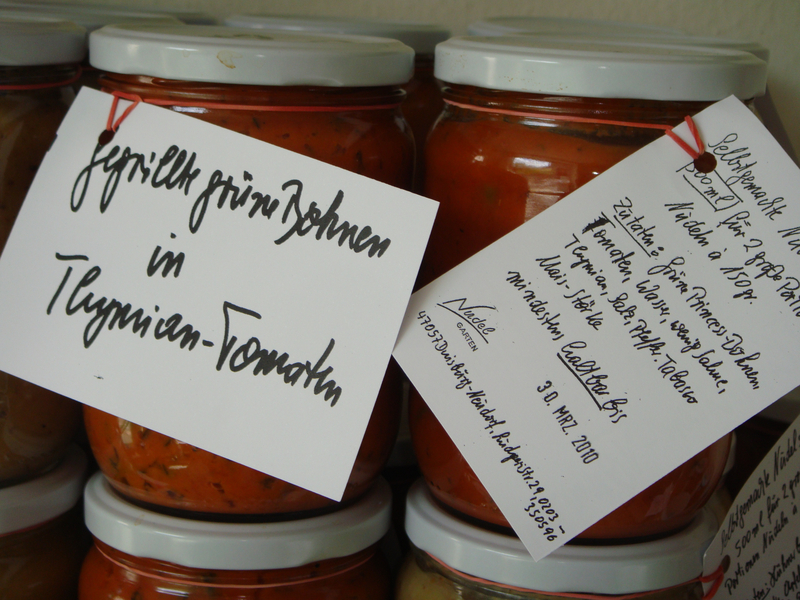 gegrillte grüne Bohnen
in
Thymian-Tomaten
Selbstgemachte
500ml für 2 große
Nudeln à 150gr.
Zutaten: Grüne Princess-Bohnen,
Tomaten, Wasser, wenig Sahne,
Thymian, Salz, Pfeffer, Tabasco
Mais-Stärke
mindestens haltbar bis
30. MRZ. 2010
Nudel
GARTEN
47057 Duisburg-Neudorf, Rüdgerstr. 29, 0203-
350596
Selbstgemachte
500ml für 2
Portionen Nudeln à